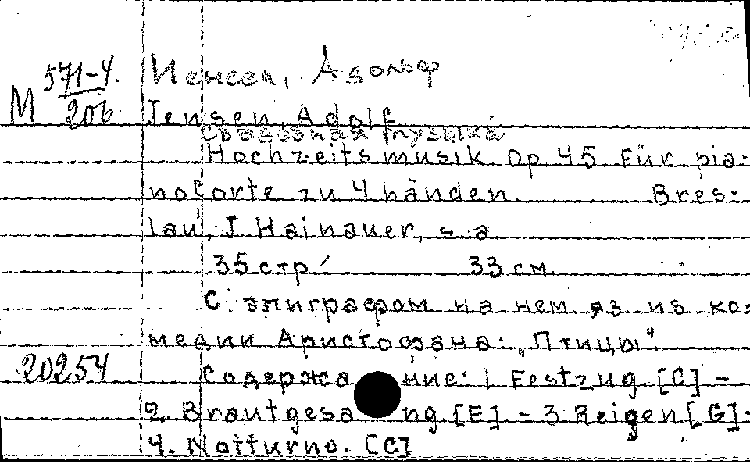 571-4. Иенсен, Адольф
М 206
Jensen, Adolf
Свадебная музыка
Hochzeitsmusik Op 45 Für pia-
noforte zu 4 händen. Bres-
lau, J Hainauer, s a
35 стр. 33 см
С эпиграфом на нем яз из ко-
медии Аристофана: „Птицы“
20254 Содержание: 1 Festzug [C] -
2. Brautgesang [E] - 3 Reigen [G]-
4. Notturno. [C]